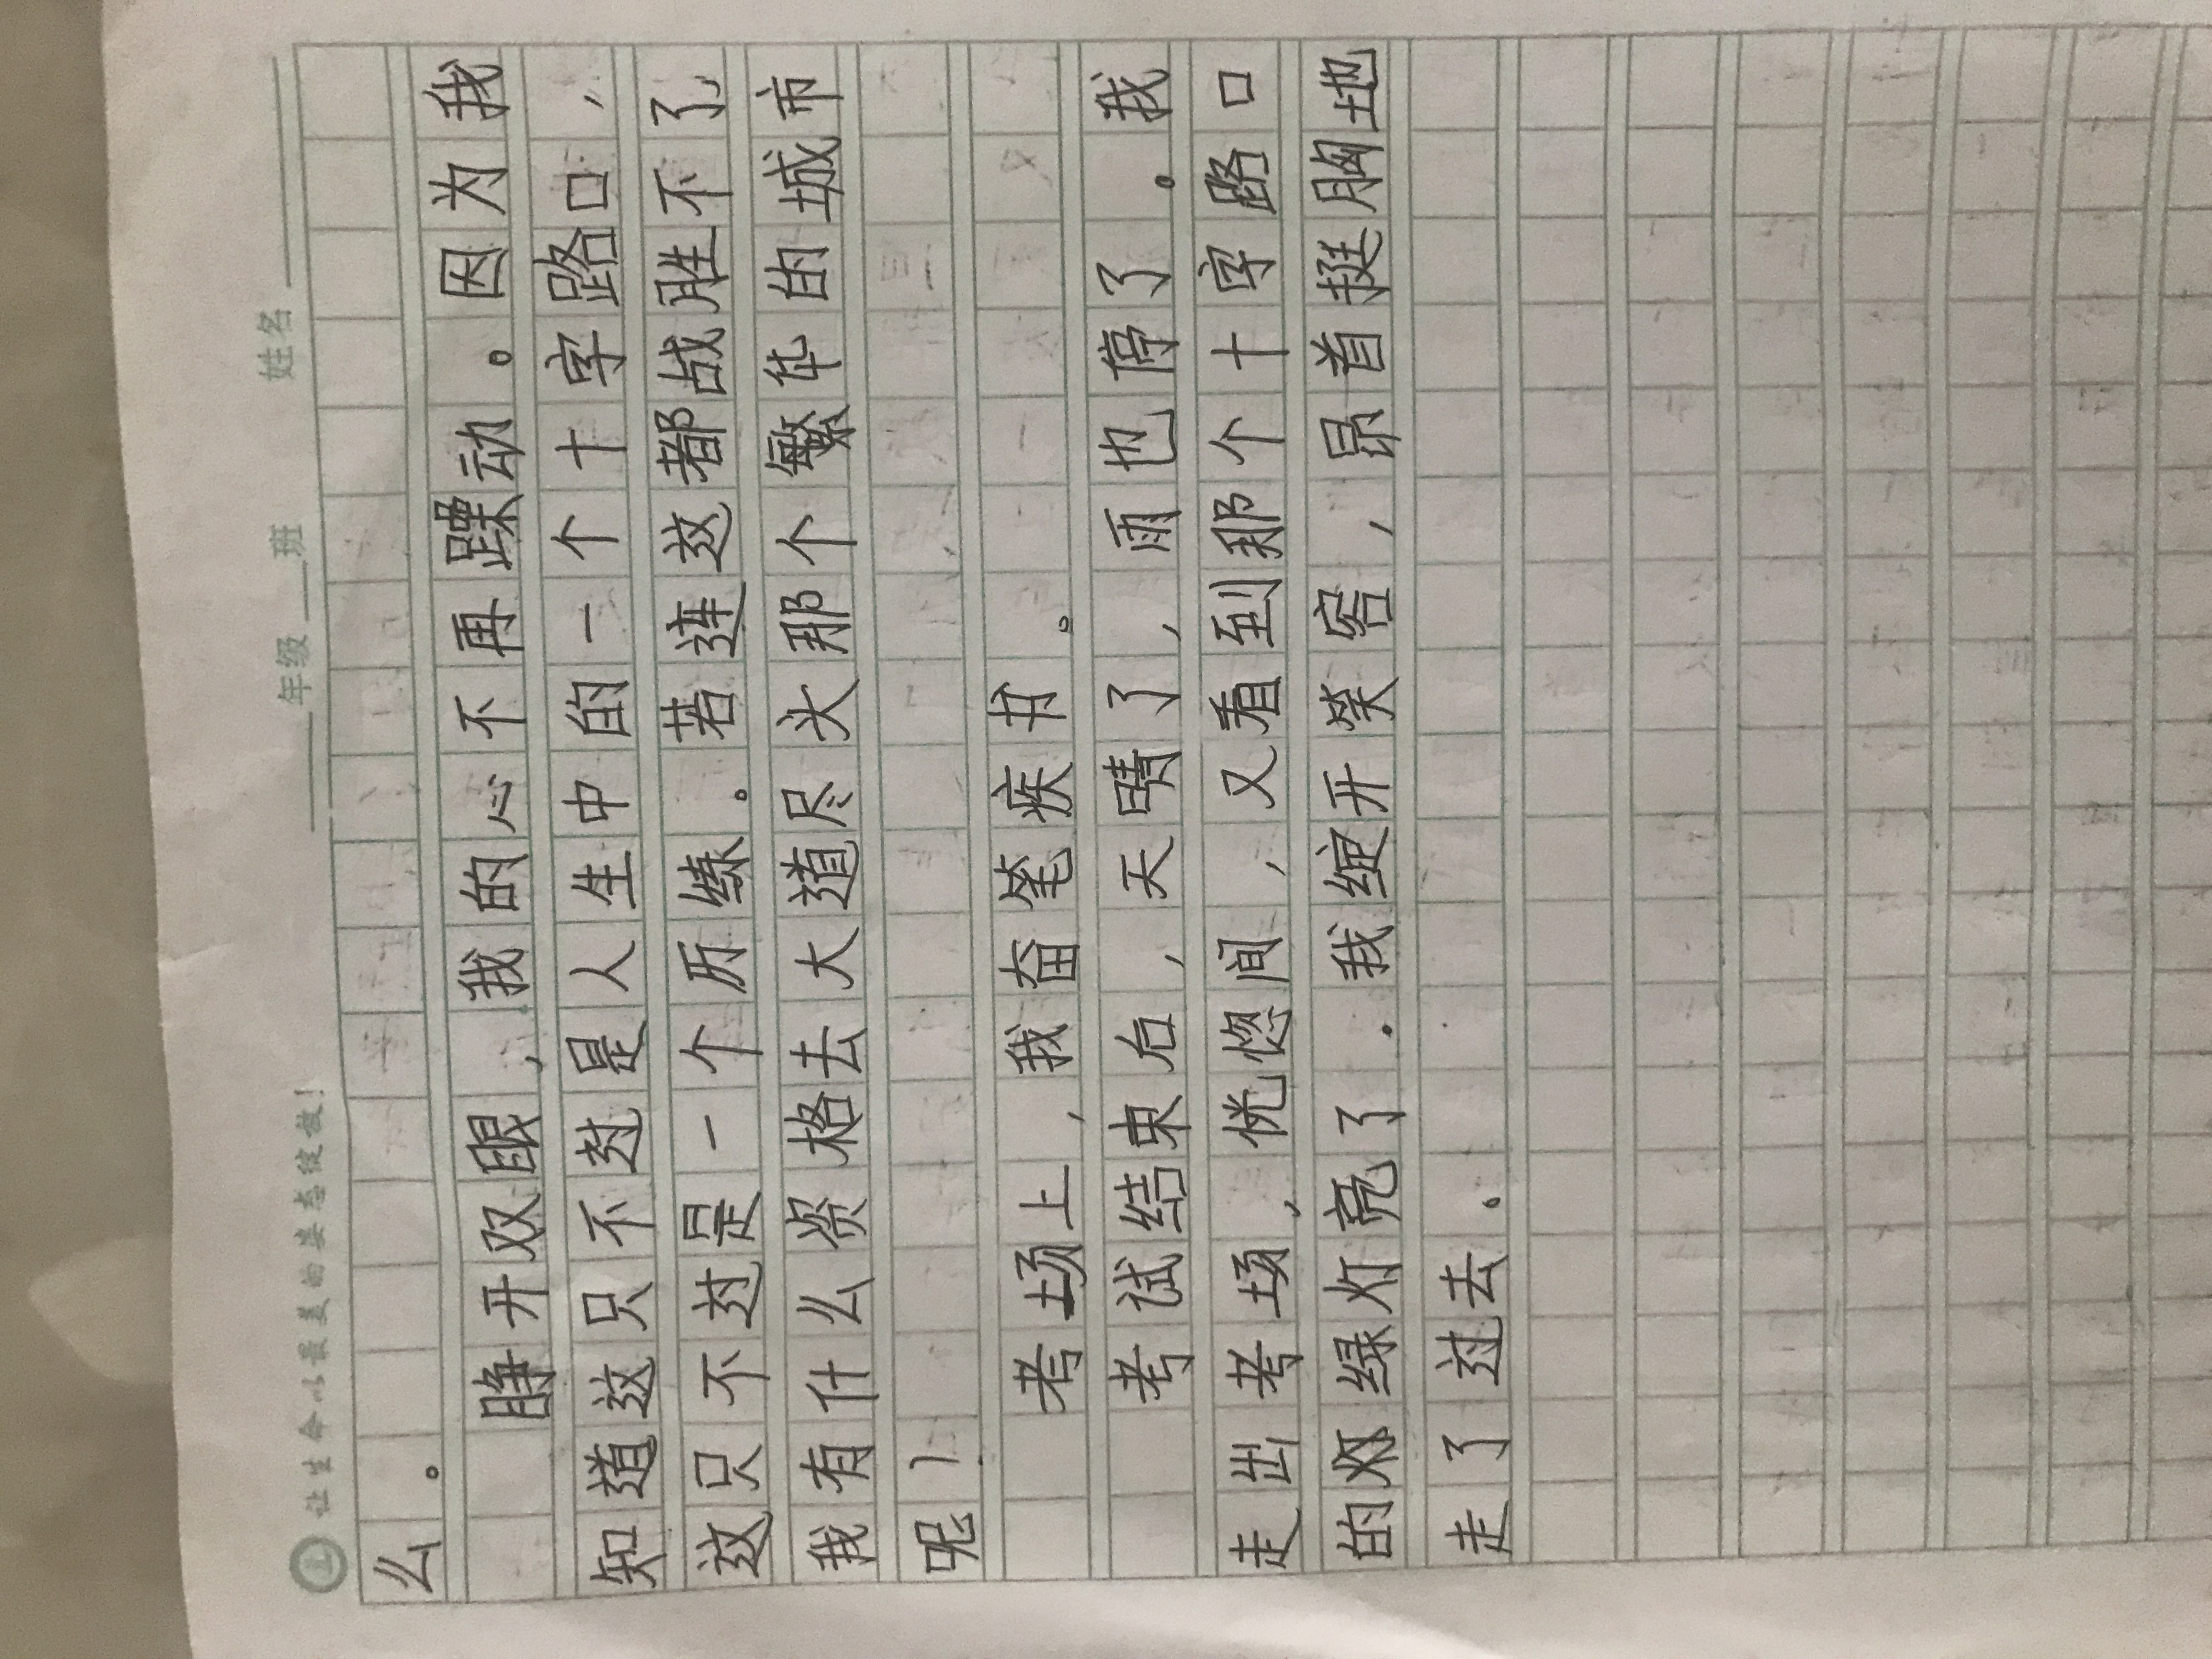 让生命以最美的姿态绽放! ___年级___班 姓名______
么。
睁开双眼,我的心不再躁动。因为我
知道这只不过是人生中的一个十字路口,
这只不过是一个历练。若连这都战胜不了,
我有什么资格去大道尽头那个繁华的城市
呢!
考场上,我奋笔疾书。
考试结束后,天晴了,雨也停了。我
走出考场,恍惚间,又看到那个十字路口
的绿灯亮了.我绽开笑容,昂首挺胸地
走了过去。